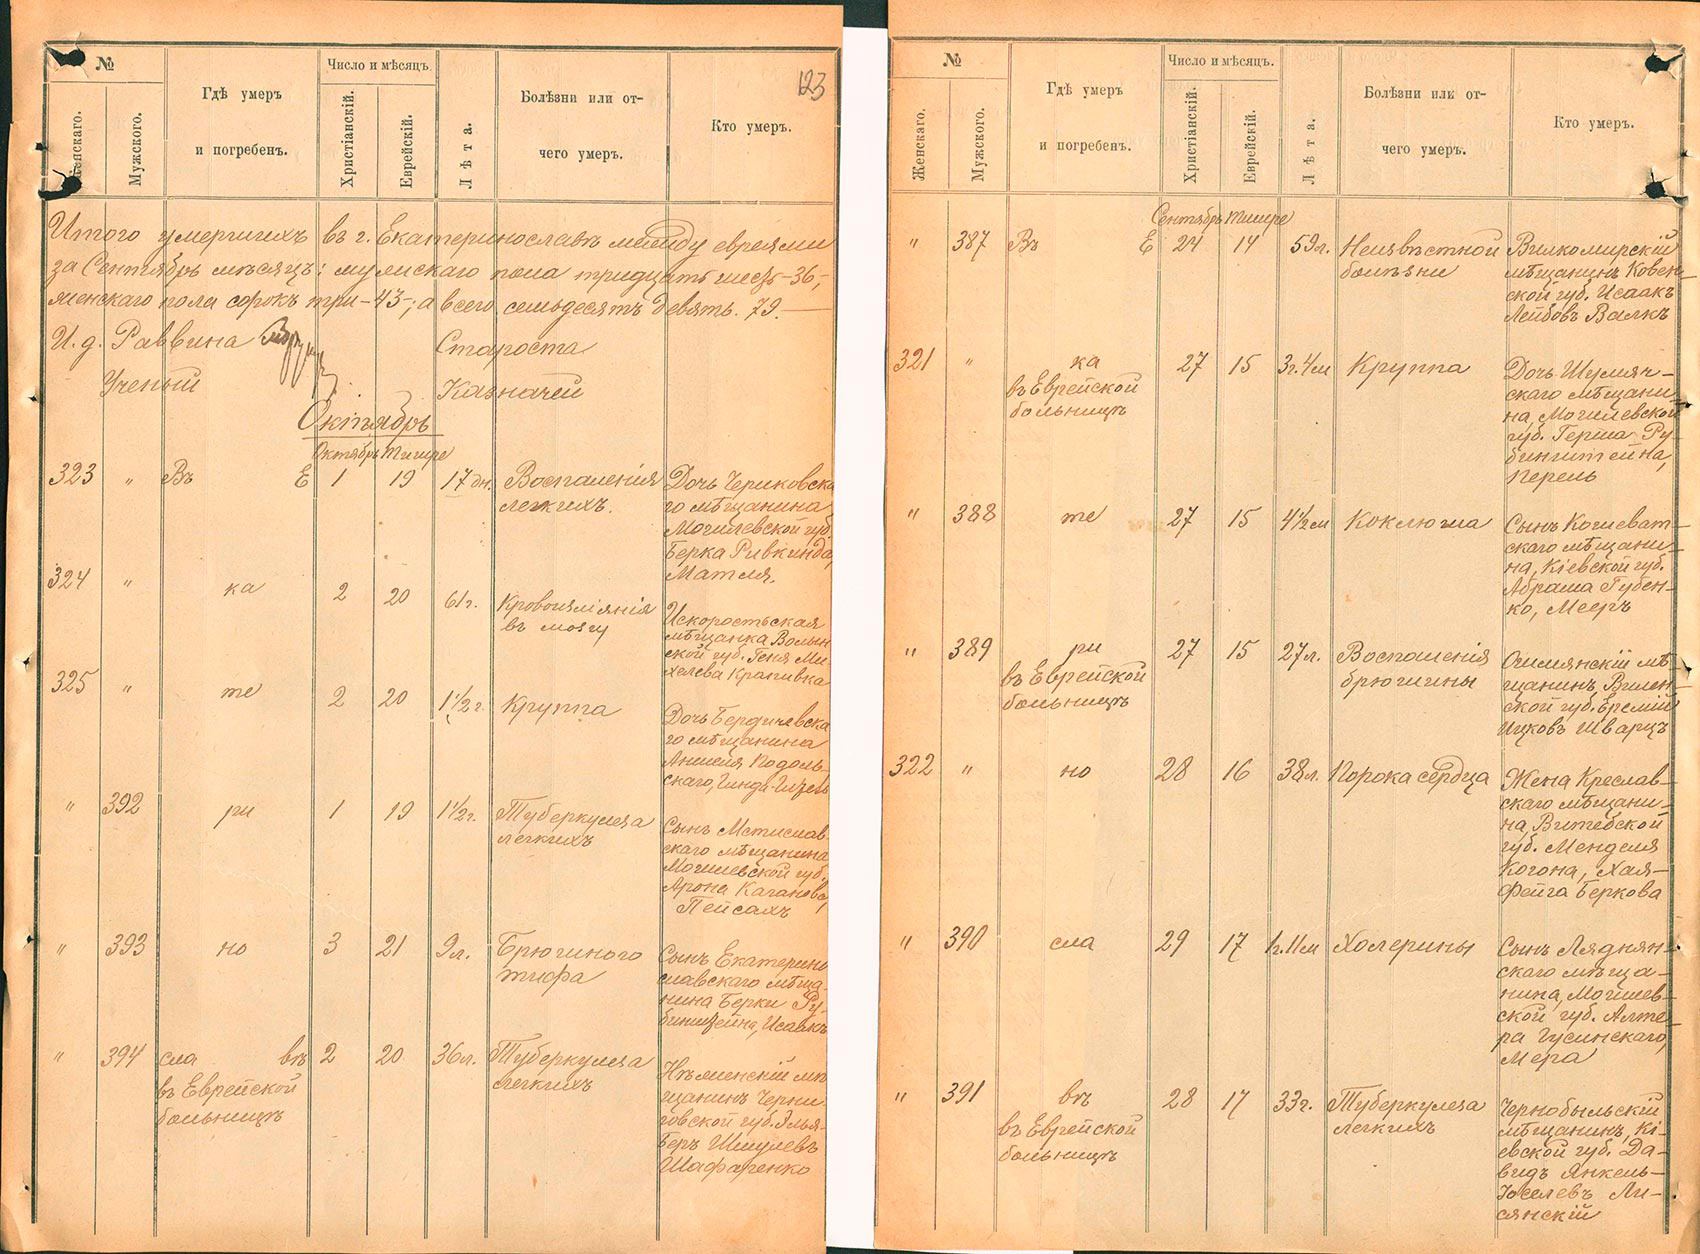 123
№
Число и мѣсяцъ.
Женскаго.
Мужского.
Гдѣ умеръ
и погребенъ.
Христіанскій.
Еврейскій.
Лѣта.
Болѣзни или от-
чего умеръ.
Кто умеръ.
Итого умершихъ въ г. Екатеринославѣ между евреями
за Сентябрь мѣсяцъ: мужскаго пола тридцать шесть -36-,
женскаго пола сорокъ три -43-; а всего семьдесятъ девять. 79.
И. д. Раввина
Староста
Ученый
Казначей
Октябрь
Октябрь Тишре
323 " Въ Е 1 19 17 дн. Воспаленія
легкихъ.
Дочь Чериковска
го мѣщанина
Могилевской губ.
Берка Ривкинда,
Матля.
324 " ка 2 20 61 г. Кровоизліянія
въ мозгу
Искоростьская
мѣщанка Волын
ской губ. Геня Ми-
хелева Крапивка
325 " те 2 20 1 1/2 г. Круппа
Дочь Бердичевска
го мѣщанина
Аншеля Подоль-
скаго,
" 392 ри 1 19 1 1/2 г. Туберкулеза
легкихъ
Сынъ Мстислав
скаго мѣщанина
Могилевской губ.
Арона Каганова,
Пейсахъ
" 393 но 3 21 9 л. Брюшного
тифа
Сынъ Екатерино
славскаго мѣща-
нина Берки Ру-
бинштейна, Исаакъ
" 394 сла вѣ 2 20 36 л. Туберкулеза
въ Еврейской легкихъ
больницѣ
Нѣжинскій мѣ
щанинъ Черни-
говской губ. Элья-
Беръ Шмулевъ
Шафаренко
№
Число и мѣсяцъ.
Женскаго.
Мужского.
Гдѣ умеръ
и погребенъ.
Христіанскій.
Еврейскій.
Лѣта.
Болѣзни или от-
чего умеръ.
Кто умеръ.
Сентябрь Тишре
" 387 Въ Е 24 14 59 л. Неизвѣстной
болѣзни
Вилкомирскій
мѣщанинъ Ковен-
ской губ. Исаакъ
Лейбовъ Валкъ
321 " ка 27 15 3 г. 4 м Круппа
въ Еврейской
больницѣ
Дочь Шумяч-
скаго мѣщани-
на, Могилевской
губ. Герша Ру-
бинштейна,
Перель
" 388 те 27 15 4 1/2 м Коклюша
Сынъ Кошеват-
скаго мѣщани-
на, Кіевской губ.
Абрама Губен-
ко, Мееръ
" 389 ри 27 15 27 л. Воспаленія
въ Еврейской брюшины
больницѣ
Ошмянскій мѣ-
щанинъ, Вилен-
ской губ. Еремій
Ицковъ Шварцъ
322 " но 28 16 38 л. Порока сердца
Жена Креслав-
скаго мѣщани-
на, Витебской
губ. Менделя
Когона, Хая-
Фейга Беркова
" 390 сла 29 17 1 г. 11 м Холерины
Сынъ Ляднян-
скаго мѣща-
нина, Могилев-
ской губ. Алте-
ра Гусинскаго,
Мера
" 391 вѣ 28 17 33 г. Туберкулеза
въ Еврейской легкихъ
больницѣ
Чернобыльскій
мѣщанинъ, Кі-
евской губ. Да-
видъ Янкель-
Іоселевъ Ли-
сянскій